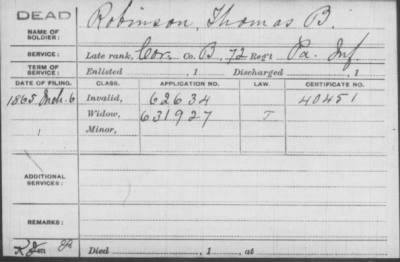 DEAD
NAME OF SOLDIER: Robinson, Thomas B.
SERVICE: Late rank, Cor. Co. B, 72 Reg't Pa. Inf.
TERM OF SERVICE: Enlisted , 1 Discharged , 1
DATE OF FILING. CLASS. APPLICATION NO. LAW. CERTIFICATE NO.
1865 Mch. 6 Invalid, 62634 40451
1 Widow, 631927 J
Minor,
ADDITIONAL SERVICES:
REMARKS:
Died , 1 , at